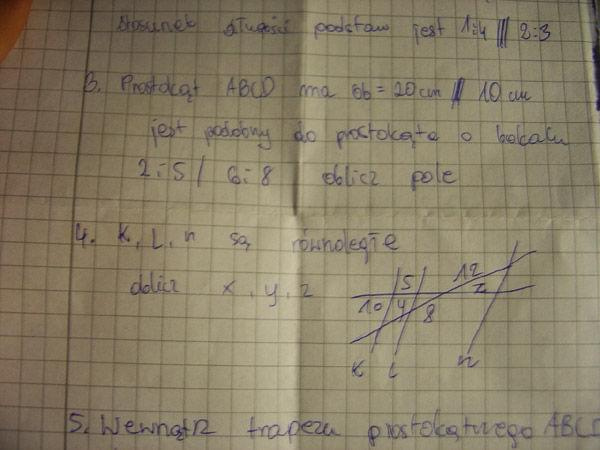 Stosunek długości podstaw jest 1:4 || 2:3
3. Prostokąt ABCD ma ob = 20cm || 10 cm
jest podobny do prostokąta o bokach
2 i 5 / 6 i 8 oblicz pole
4. K, L, n są równoległe
oblicz x, y, z
5 12
10 4 8 z
K L n
5. Wewnątrz trapezu prostokątnego ABCD